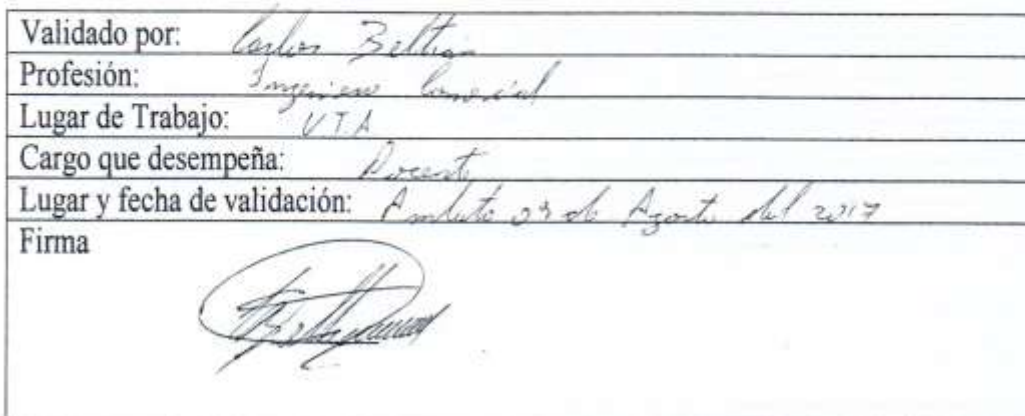 Validado por: Carlos Beltrán
Profesión: Ingeniero Comercial
Lugar de Trabajo: UTA
Cargo que desempeña: Docente
Lugar y fecha de validación: Ambato 03 de Agosto del 2017
Firma